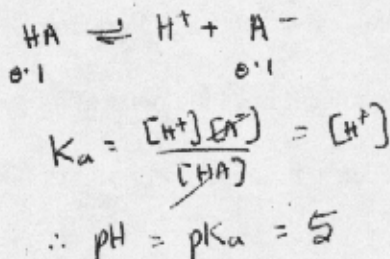 HA ⇌ H⁺ + A⁻
0.1 0.1
Ka = [H⁺][A⁻] / [HA] = [H⁺]
∴ pH = pKa = 5